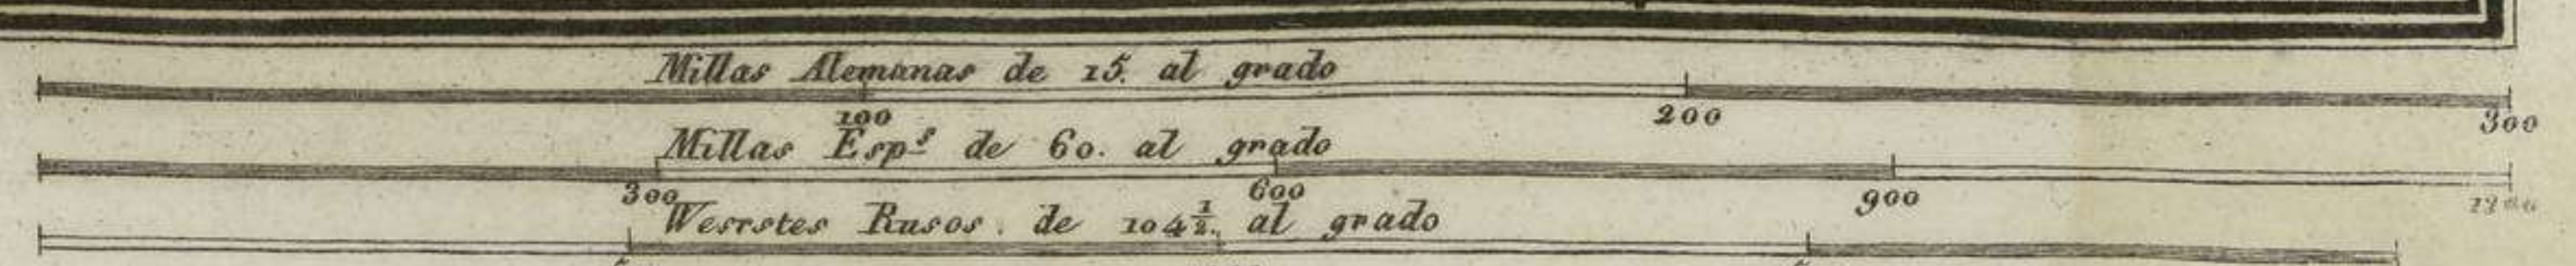 Millas Alemanas de 15. al grado
100 200 300
Millas Esp.s de 60. al grado
300 600 900 1200
Wesrstes Rusos. de 104 1/2. al grado